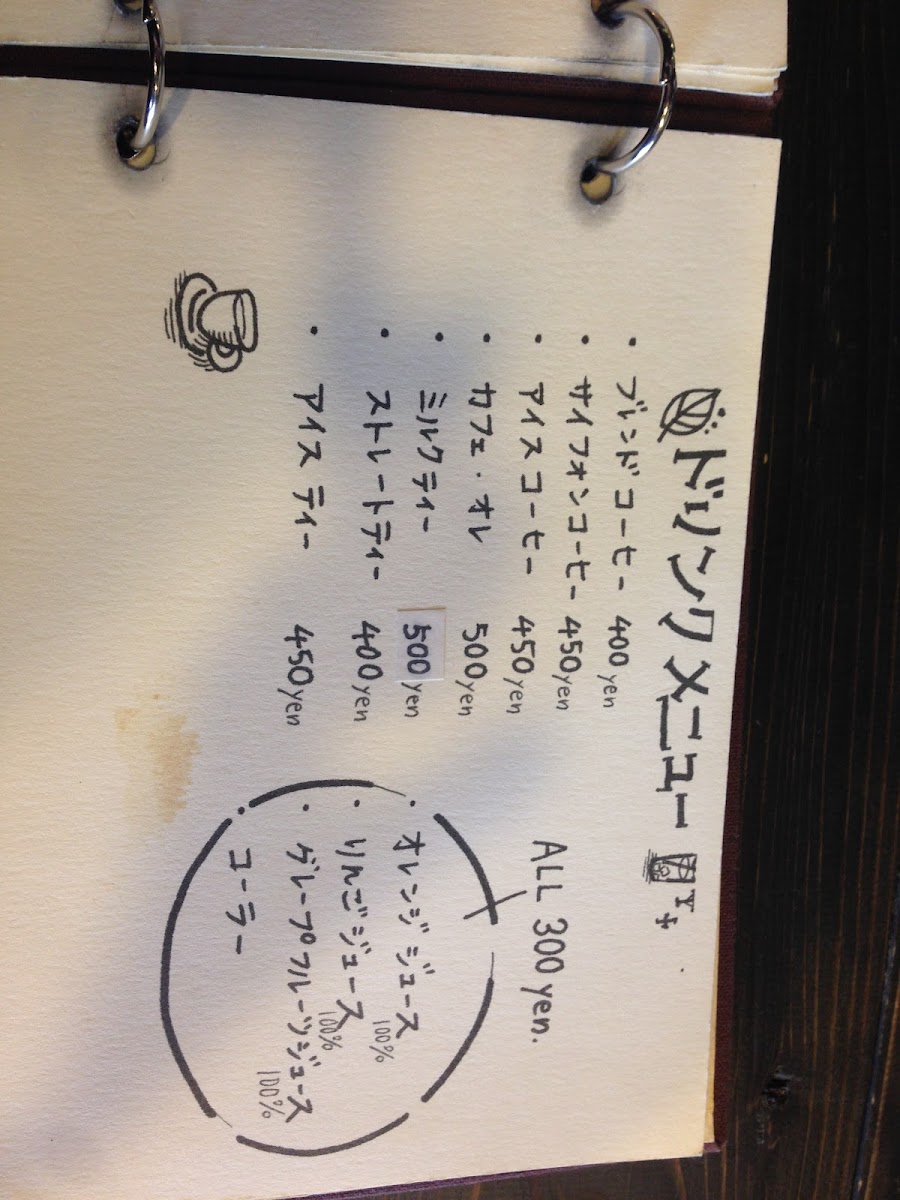 ドリンクメニュー
・ブレンドコーヒー 400yen
・サイフォンコーヒー 450yen
・アイスコーヒー 450yen
・カフェ・オレ 500yen
・ミルクティー 500yen
・ストレートティー 400yen
・アイスティー 450yen
ALL 300yen.
・オレンジジュース 100%
・りんごジュース 100%
・グレープフルーツジュース 100%
・コーラー